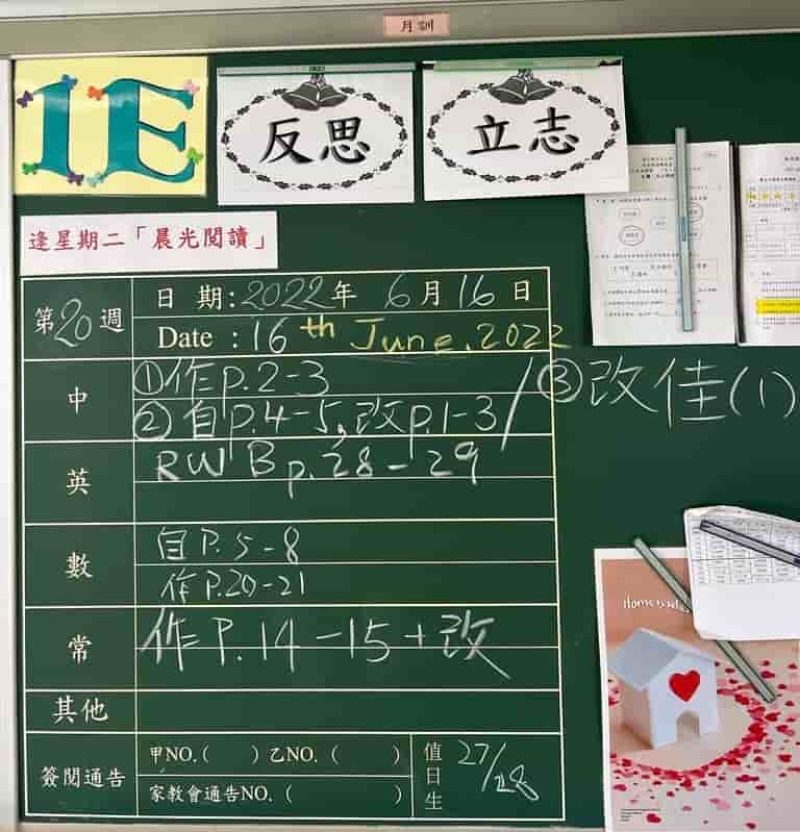 月訓
1E
反思
立志
逢星期二「晨光閱讀」
第20週
日 期:2022年 6月16日
Date : 16th June, 2022
中
①作p.2-3
②自p.4-5,改p.1-3/③改佳(1)
英
RWB p.28-29
數
自P.5-8
作P.20-21
常
作P.14-15+改
其他
簽閱通告
甲NO.( )乙NO.( )
家教會通告NO.( )
值日生
27/28